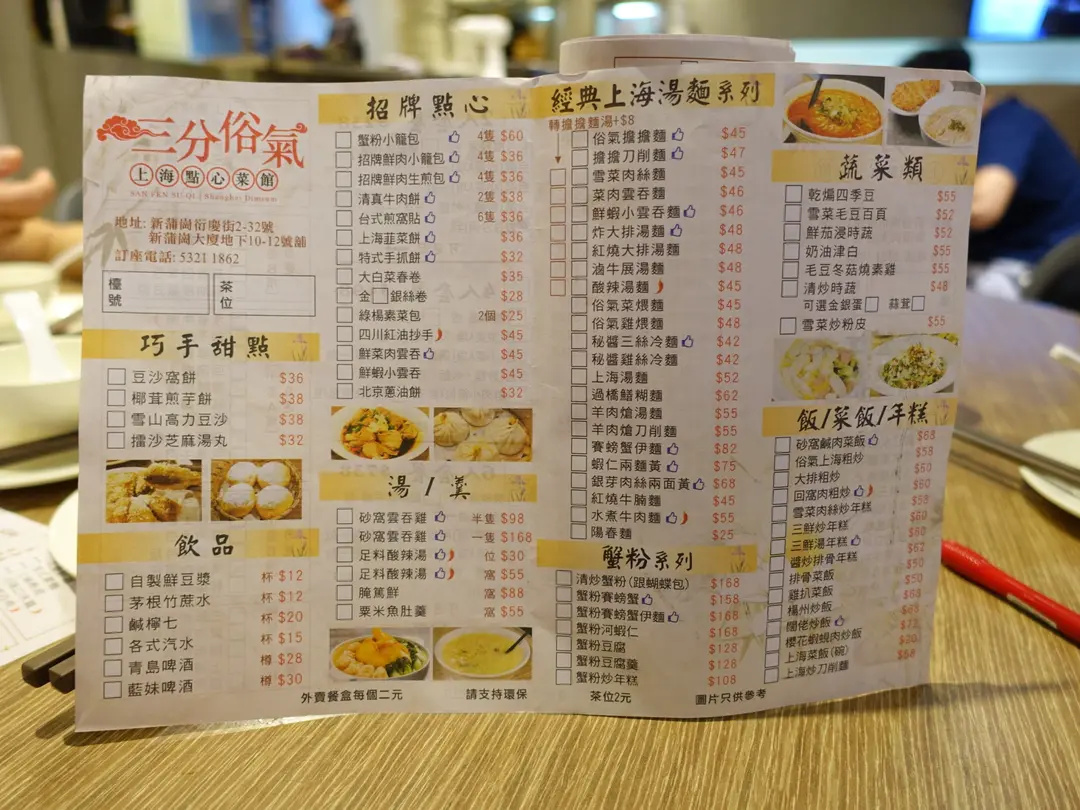 三分俗氣
上海點心菜館
SAN FEN SU QI | Shanghai Dimsum
地址: 新蒲崗衍慶街2-32號
新蒲崗大廈地下10-12號舖
訂座電話: 5321 1862
檯號
茶位
巧手甜點
豆沙窩餅 $36
椰茸煎芋餅 $38
雪山高力豆沙 $38
擂沙芝麻湯丸 $32
飲品
自製鮮豆漿 杯 $12
茅根竹蔗水 杯 $12
鹹檸七 杯 $20
各式汽水 杯 $15
青島啤酒 樽 $28
藍妹啤酒 樽 $30
招牌點心
蟹粉小籠包 4隻 $60
招牌鮮肉小籠包 4隻 $36
招牌鮮肉生煎包 4隻 $36
清真牛肉餅 2隻 $38
台式煎窩貼 6隻 $36
上海韮菜餅 $36
特式手抓餅 $32
大白菜春卷 $35
金銀絲卷 $28
綠楊素菜包 2個 $25
四川紅油抄手 $45
鮮菜肉雲吞 $45
鮮蝦雲吞 $45
北京蔥油餅 $32
湯/羹
砂窩雲吞雞 半隻 $98
砂窩雲吞雞 一隻 $168
足料酸辣湯 位 $30
足料酸辣湯 窩 $55
腌篤鮮 窩 $88
粟米魚肚羹 窩 $55
外賣餐盒每個二元
請支持環保
經典上海湯麵系列
轉擔擔麵湯+$8
俗氣擔擔麵 $45
擔擔刀削麵 $47
雪菜肉絲麵 $45
菜肉雲吞麵 $46
鮮蝦小雲吞麵 $46
炸大排湯麵 $48
紅燒大排湯麵 $48
滷牛展湯麵 $48
酸辣湯麵 $45
俗氣菜煨麵 $45
俗氣雞煨麵 $48
秘醬三絲冷麵 $42
秘醬雞絲冷麵 $42
上海湯麵 $52
過橋鱔糊麵 $62
羊肉燴湯麵 $55
羊肉燴刀削麵 $55
賽螃蟹伊麵 $82
蝦仁兩麵黃 $75
銀芽肉絲兩面黃 $68
紅燒牛腩麵 $45
水煮牛肉麵 $55
陽春麵 $25
蟹粉系列
清炒蟹粉(跟蝴蝶包) $168
蟹粉賽螃蟹 $158
蟹粉賽螃蟹伊麵 $168
蟹粉河蝦仁 $168
蟹粉豆腐 $128
蟹粉豆腐羹 $128
蟹粉炒年糕 $108
茶位2元
圖片只供參考
蔬菜類
乾煸四季豆 $55
雪菜毛豆百頁 $52
鮮茄浸時蔬 $52
奶油津白 $55
毛豆冬菇燒素雞 $55
清炒時蔬 $48
可選金銀蛋 蒜茸
雪菜炒粉皮 $55
飯/菜飯/年糕
砂窩鹹肉菜飯 $68
俗氣上海粗炒 $58
大排粗炒 $60
回窩肉粗炒 $60
雪菜肉絲炒年糕 $58
三鮮炒年糕 $60
三鮮湯年糕 $60
醬炒排骨年糕 $62
排骨菜飯
雞扒菜飯
楊州炒飯
闊佬炒飯
櫻花蝦蜆肉炒飯
上海菜飯(碗)
上海炒刀削麵